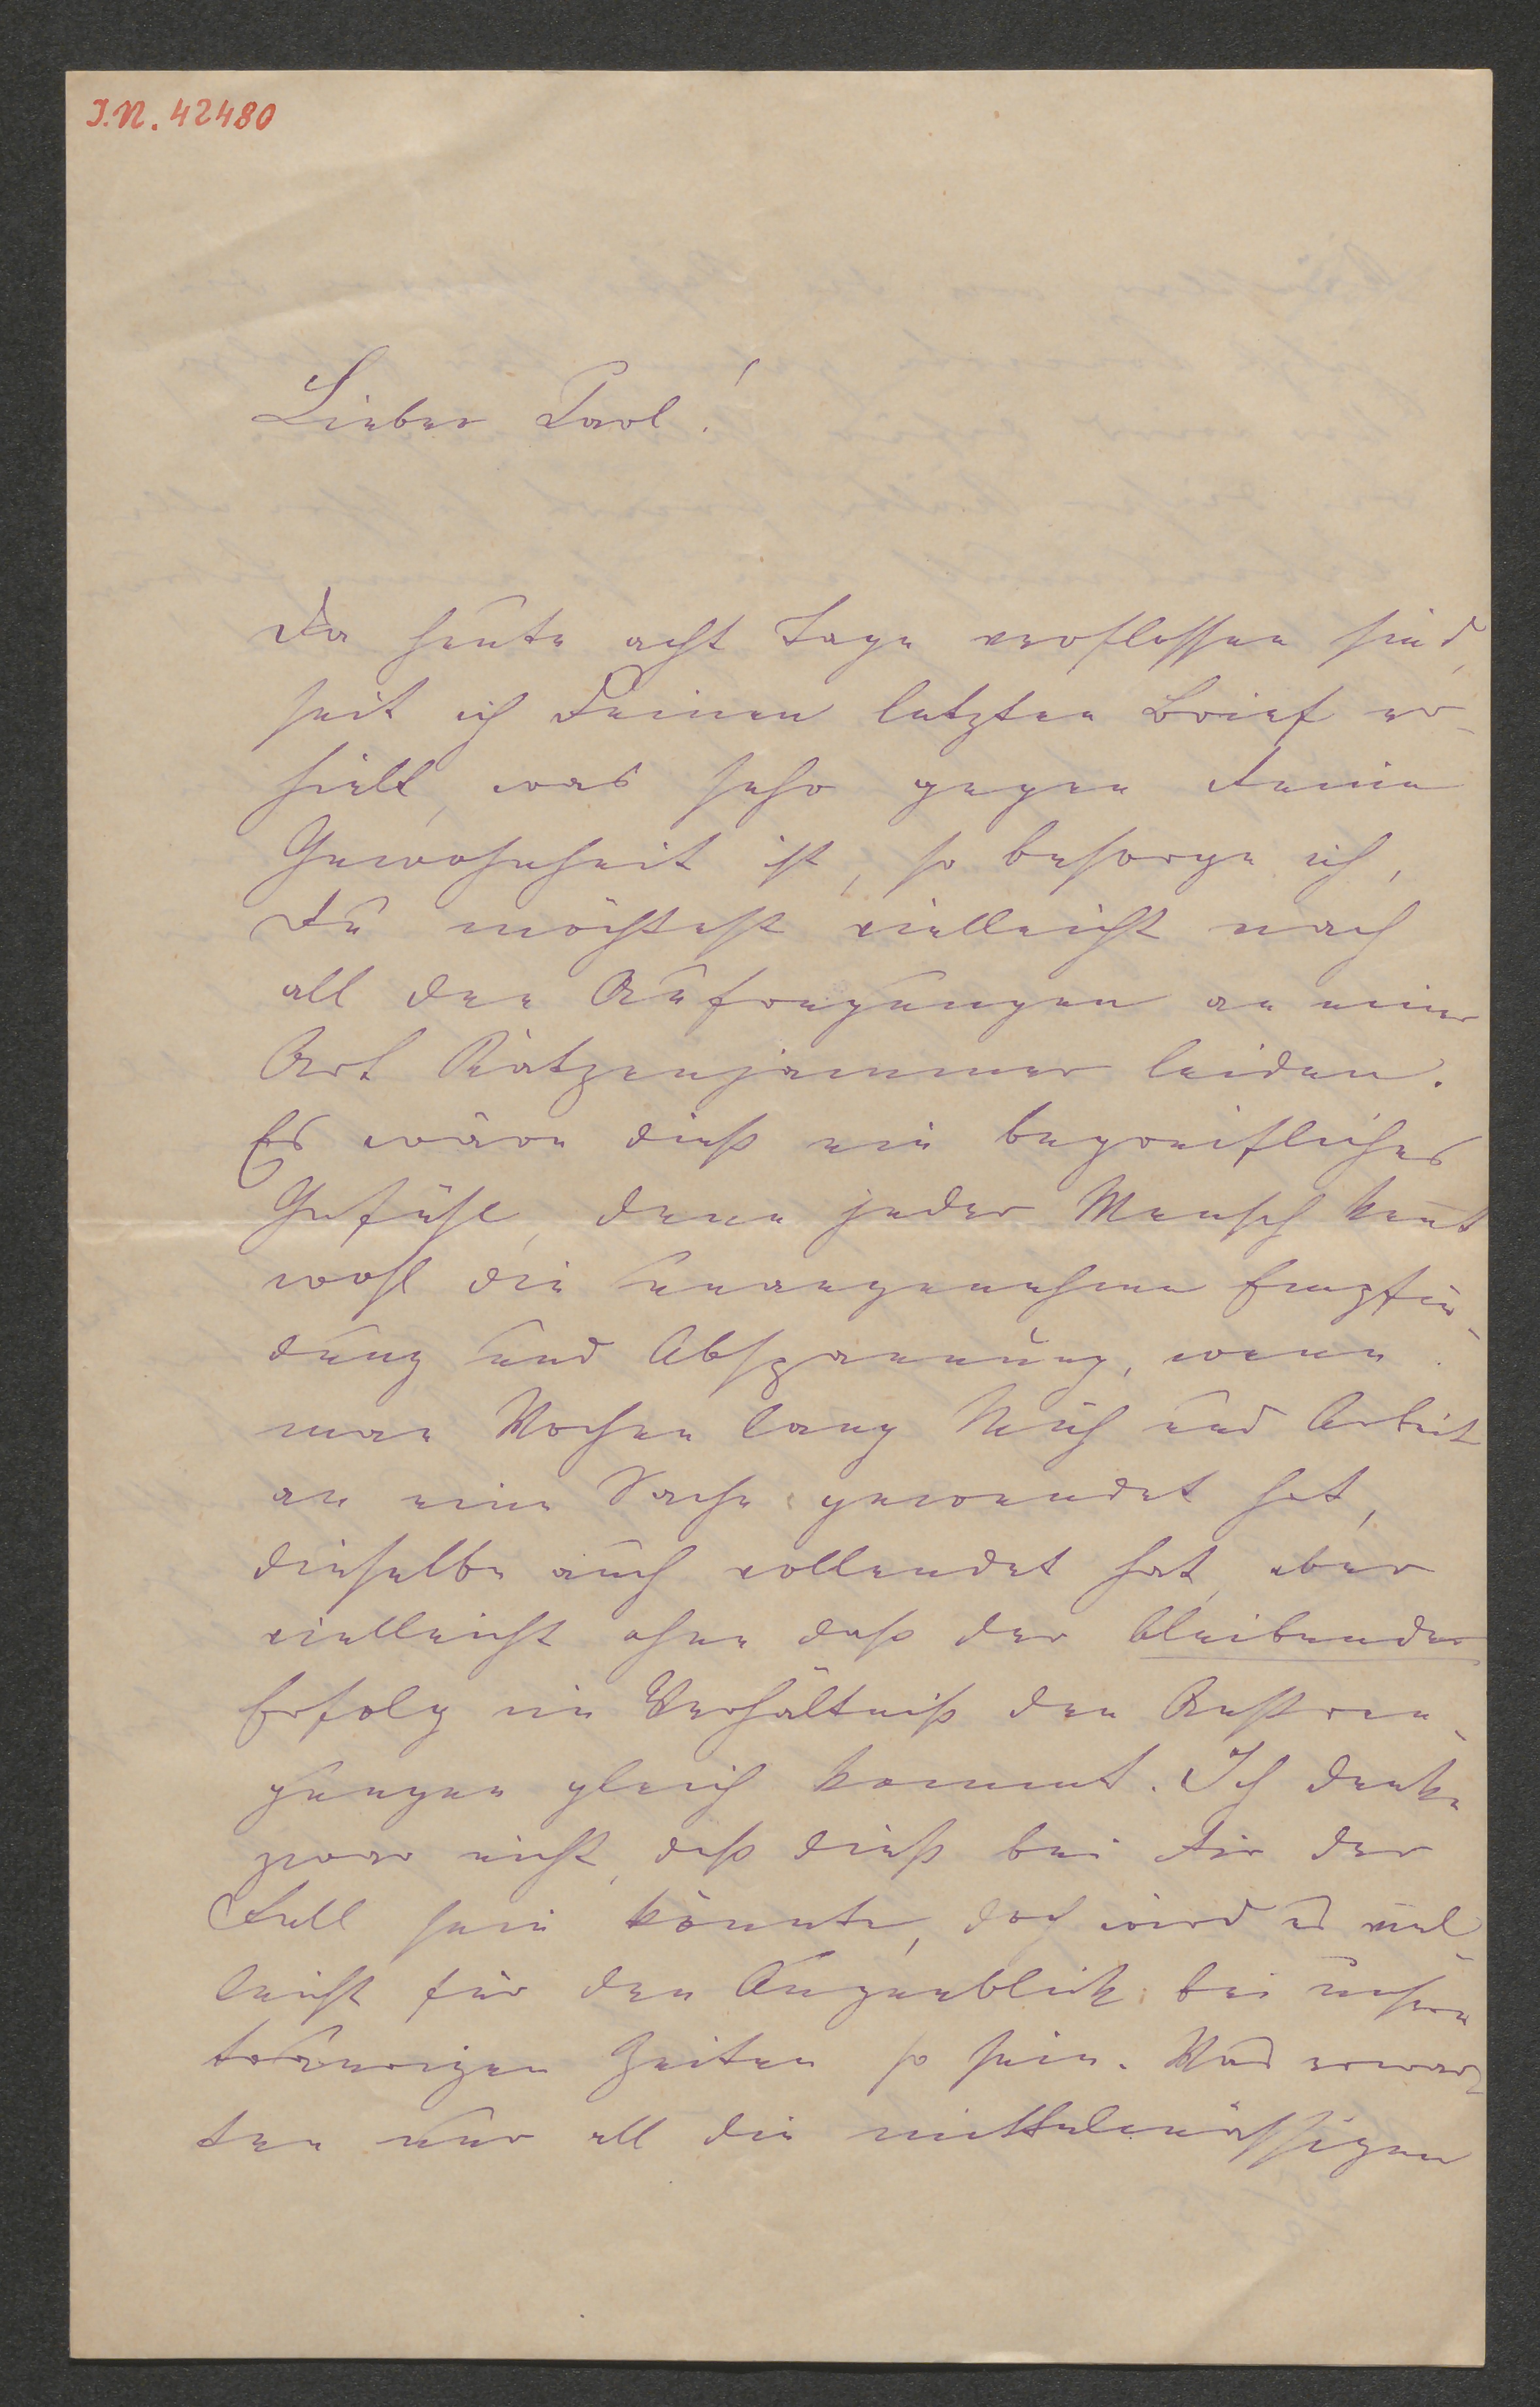 J.N. 42480
Lieber Carl!
Da heute acht Tage verflossen sind,
seit ich Deinen letzten Brief er-
hielt, was sehr gegen Deine
Gewohnheit ist, so besorge ich,
Du möchtest vielleicht nach
all den Aufregungen an einer
Art Katzenjammer leiden.
Es wäre dieß ein begreifliches
Gefühl, denn jeder Mensch kent
wohl die unangenehme Empfin-
dung und Abspannung, wenn
man Wochen lang Müh und Arbeit
an eine Sache gewendet hat,
dieselbe auch vollendet hat, aber
vielleicht ohne daß der bleibender
Erfolg im Verhältniß den Anstren-
gungen gleich kommt. Ich denke
zwar nicht, daß dieß bei Dir der
Fall sein könnte, doch wird es viel-
leicht für den Augenblick bei unsern
traurigen Zeiten so sein. Was erwar-
ten nur all die mittelmässigen